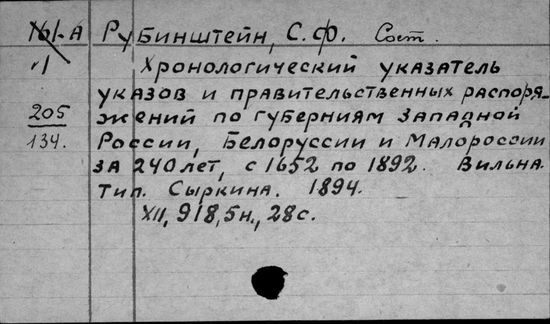 Рубинштейн, С.Ф. Сост.
Хронологический указатель
указов и правительственных распоря-
205 жений по губерниям Западной
134. России, Белоруссии и Малороссии
за 240 лет, с 1652 по 1892. Вильна.
Тип. Сыркина. 1894.
XII, 918, 5н., 28с.